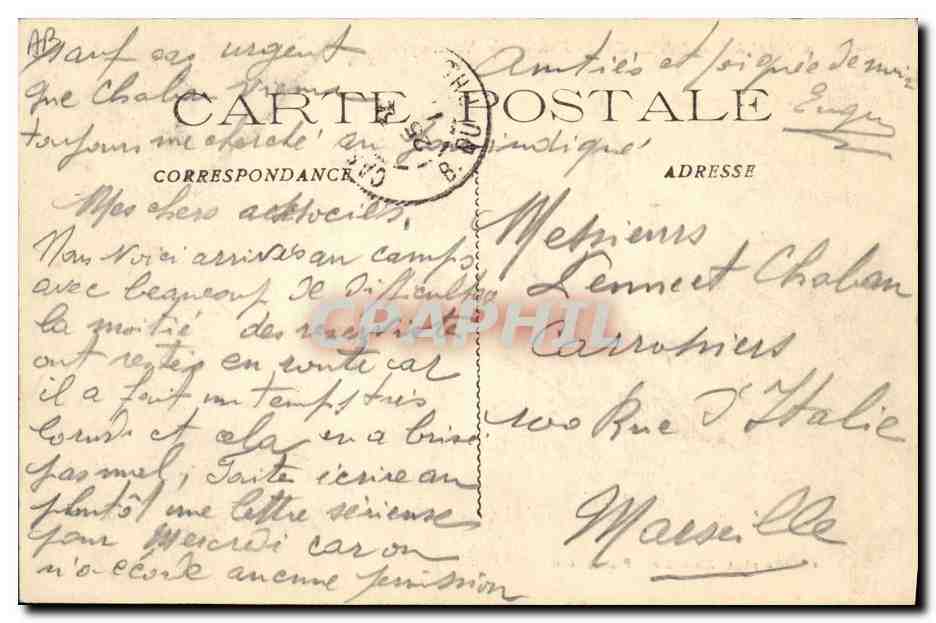 AB
Sauf cas urgent
que Chaban vienne
toujours me cherché au jour indiqué
Amitiés et poignée de main
Eugn
CARTE POSTALE
CORRESPONDANCE
ADRESSE
Mes chers associés,
Nous voici arrivés au camps
avec beaucoup de difficultés
la moitié des reservistes
ont restés en route car
il a fait un temps très
lourd et cela en a brisé
pas mal, faite écrire au
plutôt une lettre sérieuse
pour Mercredi car on
n'acécode aucune permission
Messieurs
et Chaban
Carrossiers
100 Rue d'Italie
Marseille
CARPHIL